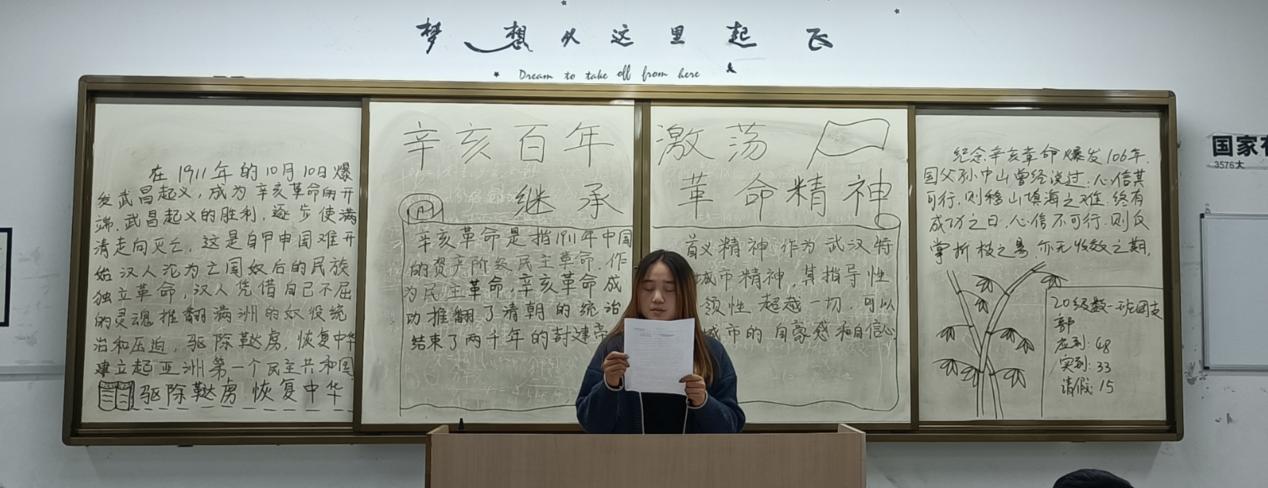 梦想从这里起飞
Dream to take off from here
在1911年的10月10日爆
发武昌起义，成为辛亥革命的开
端。武昌起义的胜利，逐步使满
清走向灭亡，这是自甲申国难开
始汉人沦为亡国奴后的民族
独立革命，汉人凭借自己不屈
的灵魂推翻满洲的奴役统
治和压迫，驱除鞑虏，恢复中华
建立起亚洲第一个民主共和国
驱除鞑虏 恢复中华
辛亥百年 激荡
继承 革命精神
辛亥革命是指1911年中国
的资产阶级民主革命，作
为民主革命，辛亥革命成
功推翻了清朝的统治
结束了两千年的封建帝
首义精神作为武汉特
城市精神，其指导性
领性超越一切，可以
城市的自豪感和自信心
纪念辛亥革命爆发106年，
国父孙中山曾经说过，心信其
可行，则移山填海之难，终有
成功之日，心信不可行，则反
掌折枝之易，亦无收效之期。
20级数一班团支
部
应到：48
实到：33
请假：15
国家
3576大